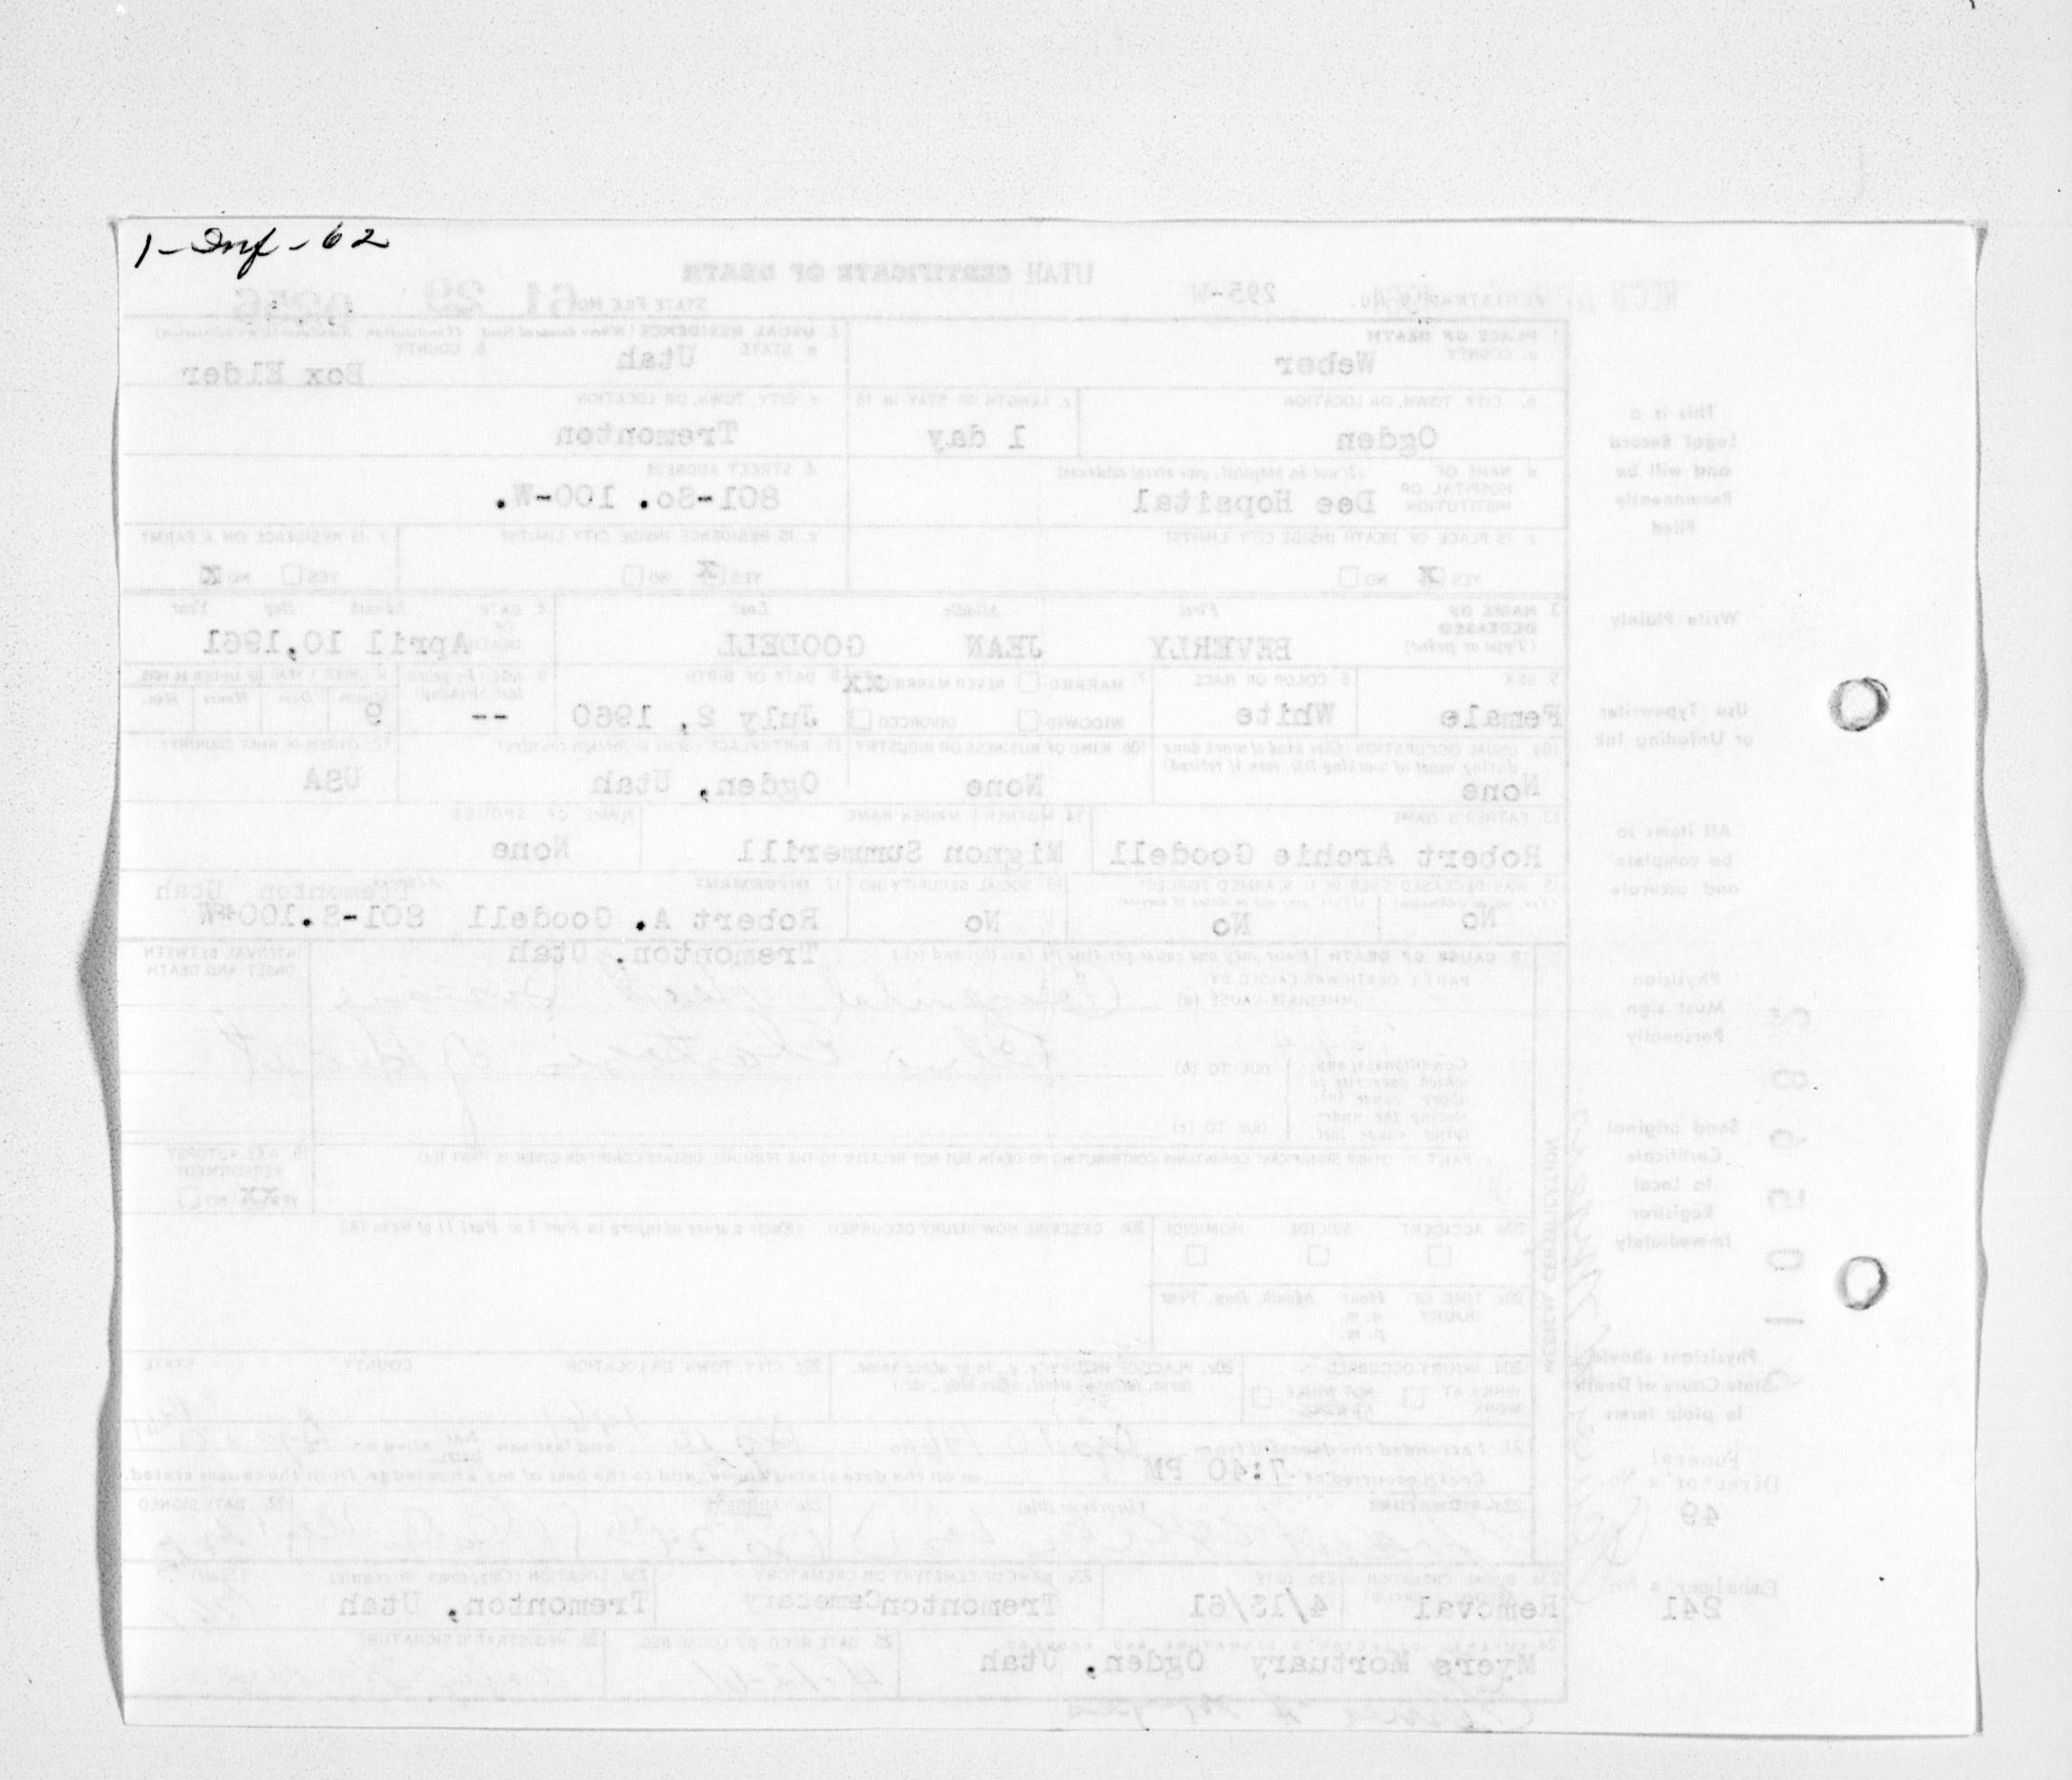 1-Inf-62
UTAH CERTIFICATE OF DEATH
REGISTRAR'S No. 295-W
STATE FILE NO. 61 29 0256
1. PLACE OF DEATH
a. COUNTY
Weber
2. USUAL RESIDENCE (Where deceased lived. If institution: Residence before admission)
a. STATE Utah
b. COUNTY Box Elder
b. CITY, TOWN, OR LOCATION
Ogden
c. LENGTH OF STAY IN 1b
1 day
c. CITY, TOWN, OR LOCATION
Tremonton
d. NAME OF HOSPITAL OR INSTITUTION (If not in hospital, give street address)
Dee Hopsital
d. STREET ADDRESS
801-So. 100-W.
e. IS PLACE OF DEATH INSIDE CITY LIMITS?
YES X NO
e. IS RESIDENCE INSIDE CITY LIMITS?
YES X NO
f. IS RESIDENCE ON A FARM?
YES NO X
3. NAME OF DECEASED (Type or print)
First Middle Last
BEVERLY JEAN GOODELL
4. DATE OF DEATH
Month Day Year
April 10,1961
5. SEX
Female
6. COLOR OR RACE
White
7. MARRIED NEVER MARRIED XX
WIDOWED DIVORCED
8. DATE OF BIRTH
July 2, 1960
9. AGE (In years last birthday)
--
IF UNDER 1 YEAR IF UNDER 24 HRS.
Months Days Hours Min.
9
10a. USUAL OCCUPATION (Give kind of work done during most of working life, even if retired)
None
10b. KIND OF BUSINESS OR INDUSTRY
None
11. BIRTHPLACE (State or foreign country)
Ogden, Utah
12. CITIZEN OF WHAT COUNTRY?
USA
13. FATHER'S NAME
Robert Archie Goodell
14. MOTHER'S MAIDEN NAME
Mignon Summerill
NAME OF SPOUSE
None
15. WAS DECEASED EVER IN U. S. ARMED FORCES?
No No
16. SOCIAL SECURITY NO.
No
17. INFORMANT Address
Tremonton Utah
Robert A. Goodell 801-S.100*W
Tremonton, Utah
18. CAUSE OF DEATH [Enter only one cause per line for (a), (b), and (c)]
INTERVAL BETWEEN ONSET AND DEATH
PART I. DEATH WAS CAUSED BY:
IMMEDIATE CAUSE (a) Congenital Heart Disease
Conditions, if any, which gave rise to above cause (a), stating the underlying cause last.
DUE TO (b)
DUE TO (c)
PART II. OTHER SIGNIFICANT CONDITIONS CONTRIBUTING TO DEATH BUT NOT RELATED TO THE TERMINAL DISEASE CONDITION GIVEN IN PART I(a)
19. WAS AUTOPSY PERFORMED?
YES XX NO
20a. ACCIDENT SUICIDE HOMICIDE
20b. DESCRIBE HOW INJURY OCCURRED. (Enter nature of injury in Part I or Part II of item 18.)
20c. TIME OF INJURY Hour Month, Day, Year
a. m.
p. m.
20d. INJURY OCCURRED
WHILE AT WORK NOT WHILE AT WORK
20e. PLACE OF INJURY (e. g., in or about home, farm, factory, street, office bldg., etc.)
20f. CITY, TOWN, OR LOCATION COUNTY STATE
21. I attended the deceased from
and last saw her him alive on
Death occurred at 7:40 PM m on the date stated above, and to the best of my knowledge, from the causes stated.
22a. SIGNATURE (Degree or title)
22b. ADDRESS
22c. DATE SIGNED
23a. BURIAL, CREMATION, REMOVAL
Removal
23b. DATE
4/13/61
23c. NAME OF CEMETERY OR CREMATORY
Tremonton Cemetary
23d. LOCATION (City, town, or county) (State)
Tremonton, Utah
24. FUNERAL DIRECTOR'S SIGNATURE AND ADDRESS
Myers Mortuary Ogden, Utah
25. DATE RECD. BY LOCAL REG.
4-12-61
26. REGISTRAR'S SIGNATURE
This is a
Legal Record
and will be
Permanently
Filed
Write Plainly
Use Typewriter
or Unfading Ink
All items to
be complete
and accurate
Physician
Must sign
Personally
Send original
Certificate
to Local
Registrar
Immediately
Physicians should
State Cause of Death
in plain terms
Funeral
Director's No.
49
Embalmer's No.
241
MEDICAL CERTIFICATION